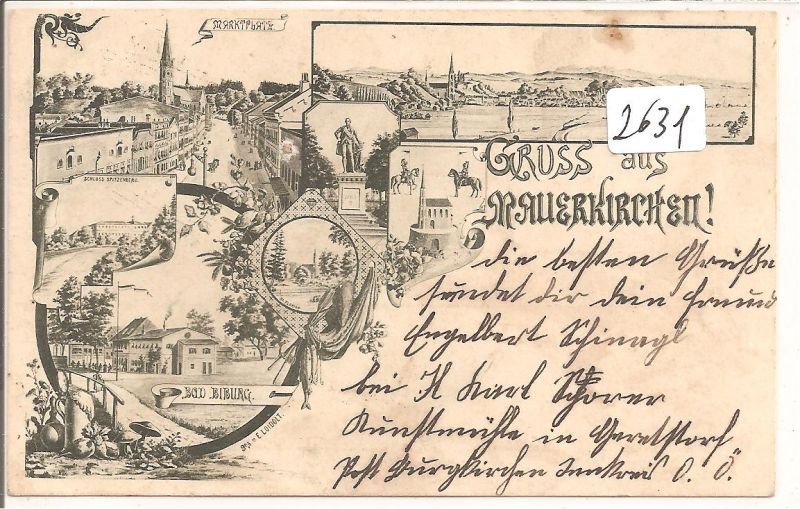 MARKTPLATZ.
2631
GRUSS aus
MAUERKIRCHEN!
SCHLOSS SPITZENBERG.
BAD BIBURG.
die besten Grüße
sendet dir dein Freund
Engelbert Schinagl
bei H Karl Schörer
Kunstmühle in Geretstorf
Post Burgkirchen O. Ö.